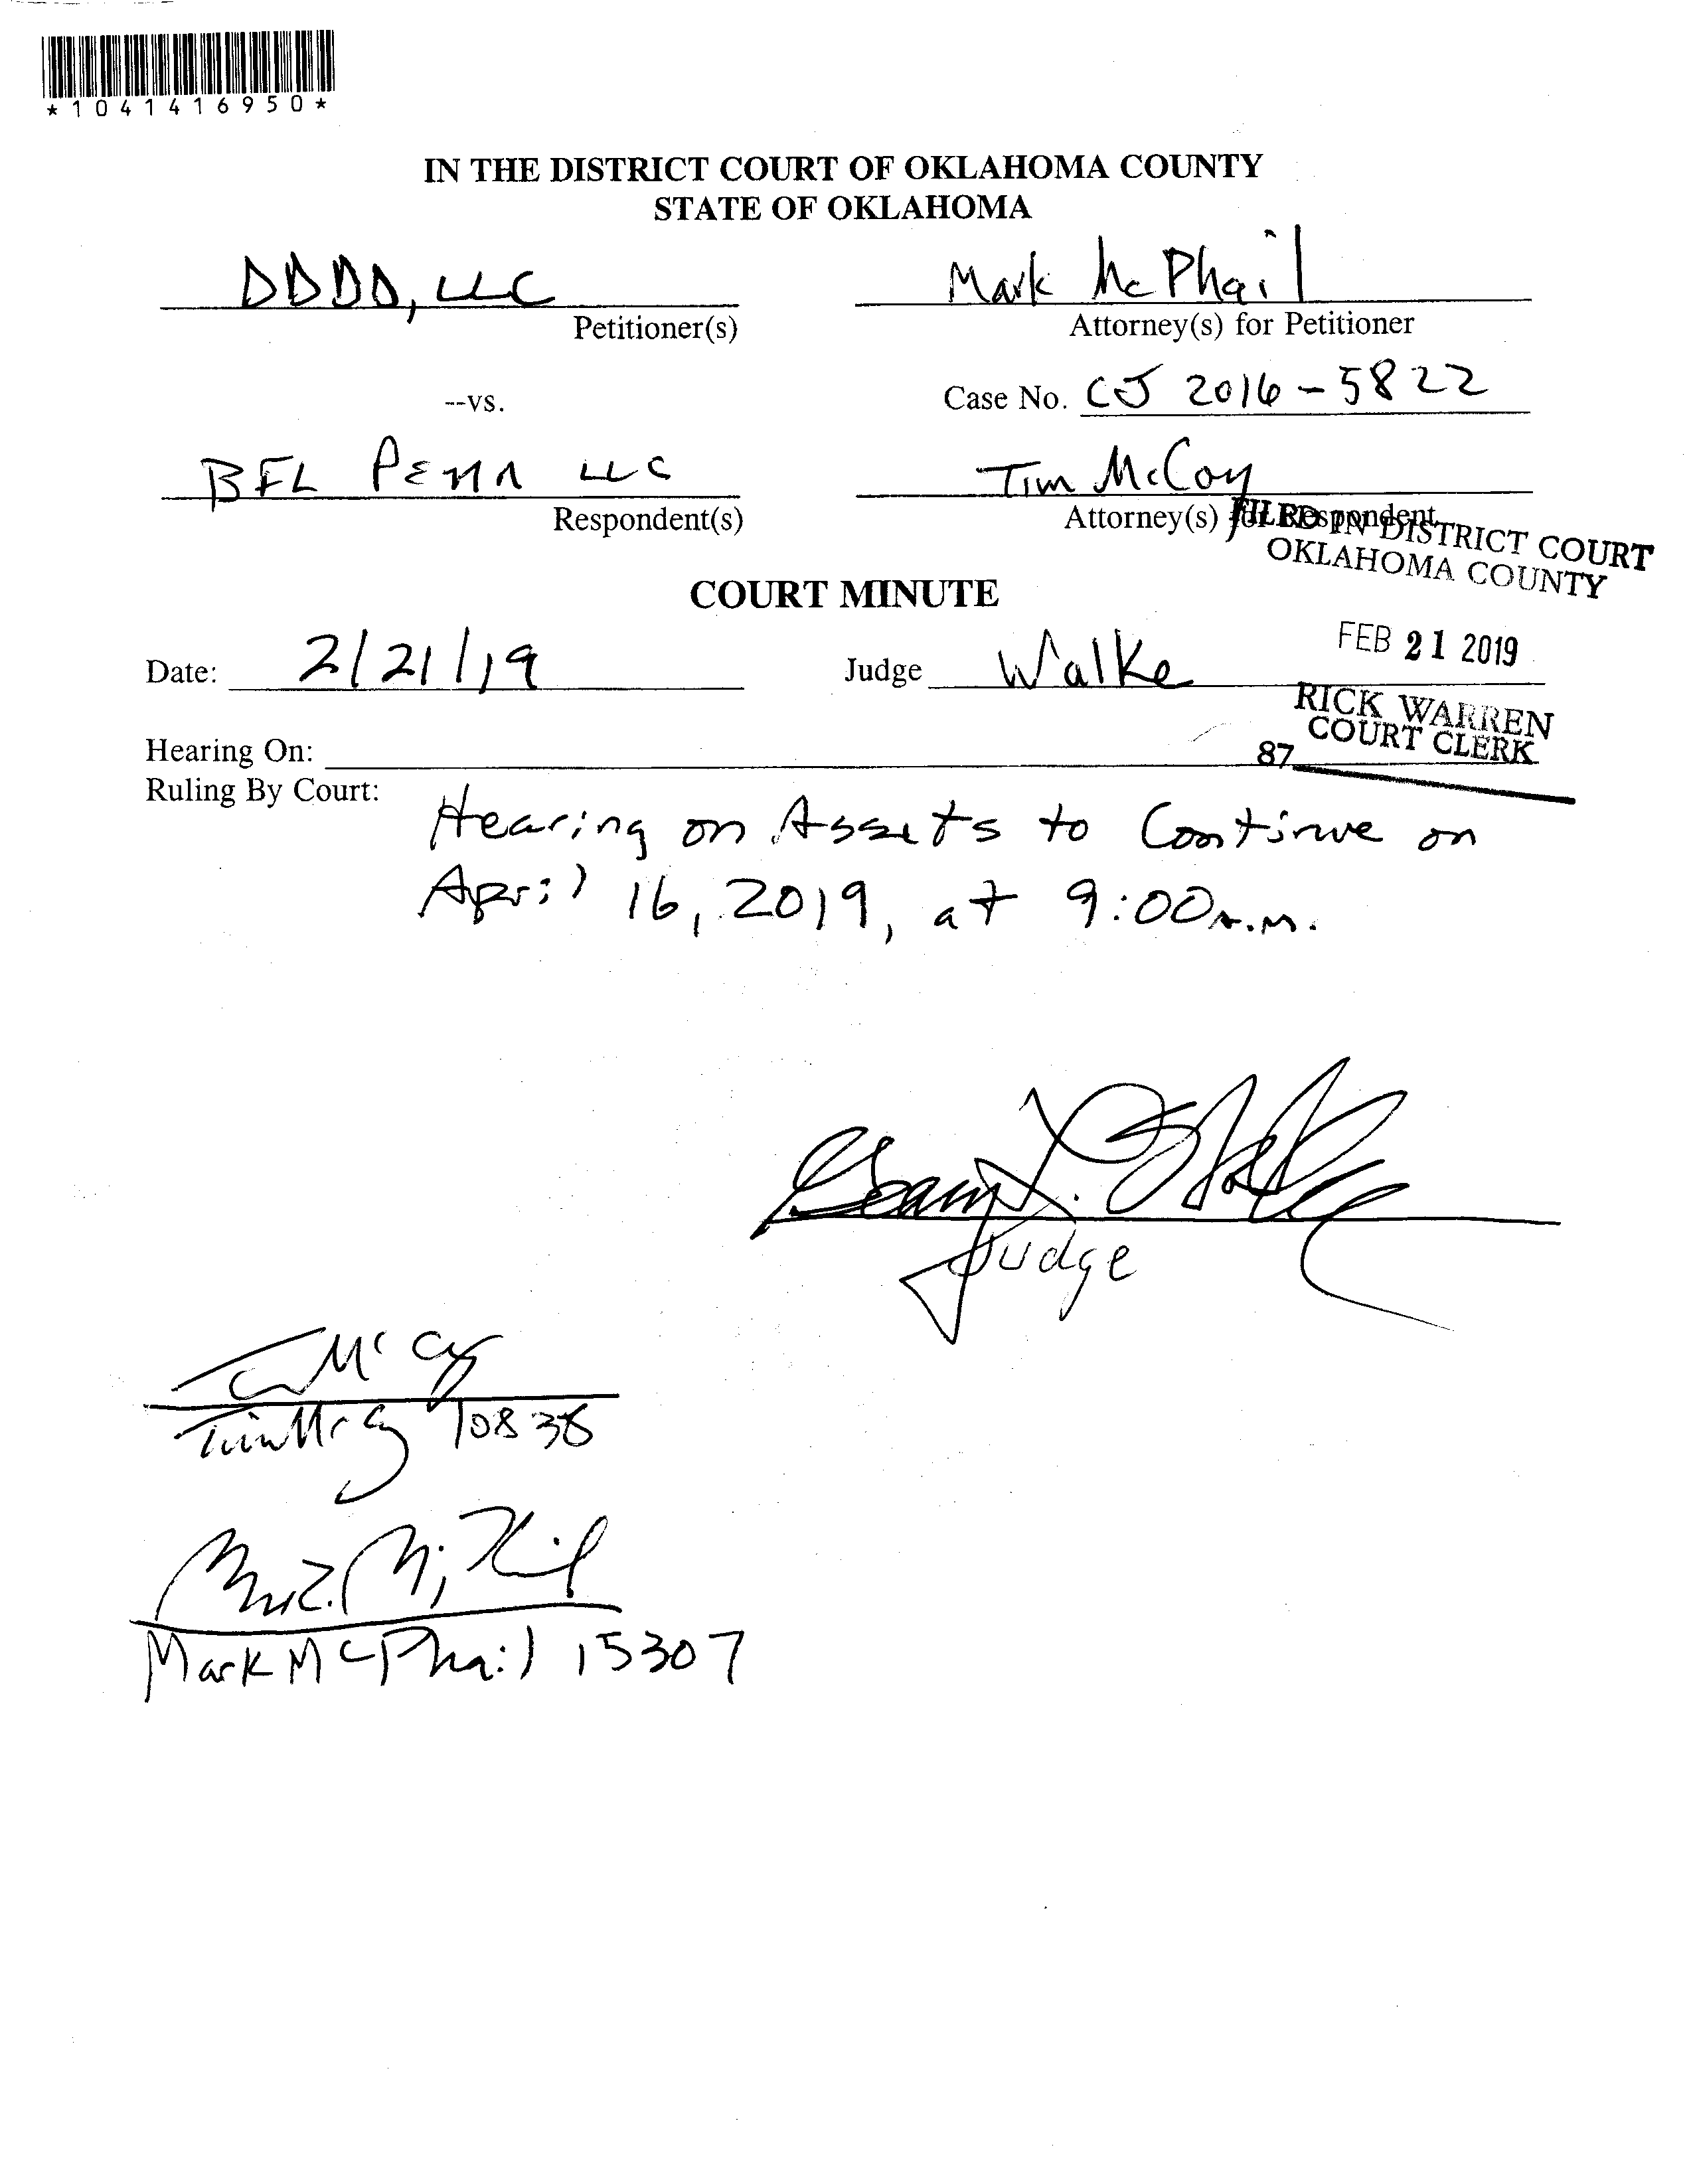 *1041416950*
IN THE DISTRICT COURT OF OKLAHOMA COUNTY
STATE OF OKLAHOMA
DDDD, LLC
Petitioner(s)
Mark McPhail
Attorney(s) for Petitioner
--vs.
Case No. CJ 2016-5822
BFL PENN LLC
Respondent(s)
Tim McCoy
Attorney(s) for Respondent
FILED IN DISTRICT COURT
OKLAHOMA COUNTY
COURT MINUTE
FEB 21 2019
Date: 2/21/19
Judge Walke
RICK WARREN
COURT CLERK
87
Hearing On:
Ruling By Court:
Hearing on Assets to Continue on
April 16, 2019, at 9:00 A.M.
Judge
Tim McCoy 10838
Mark McPhail 15307